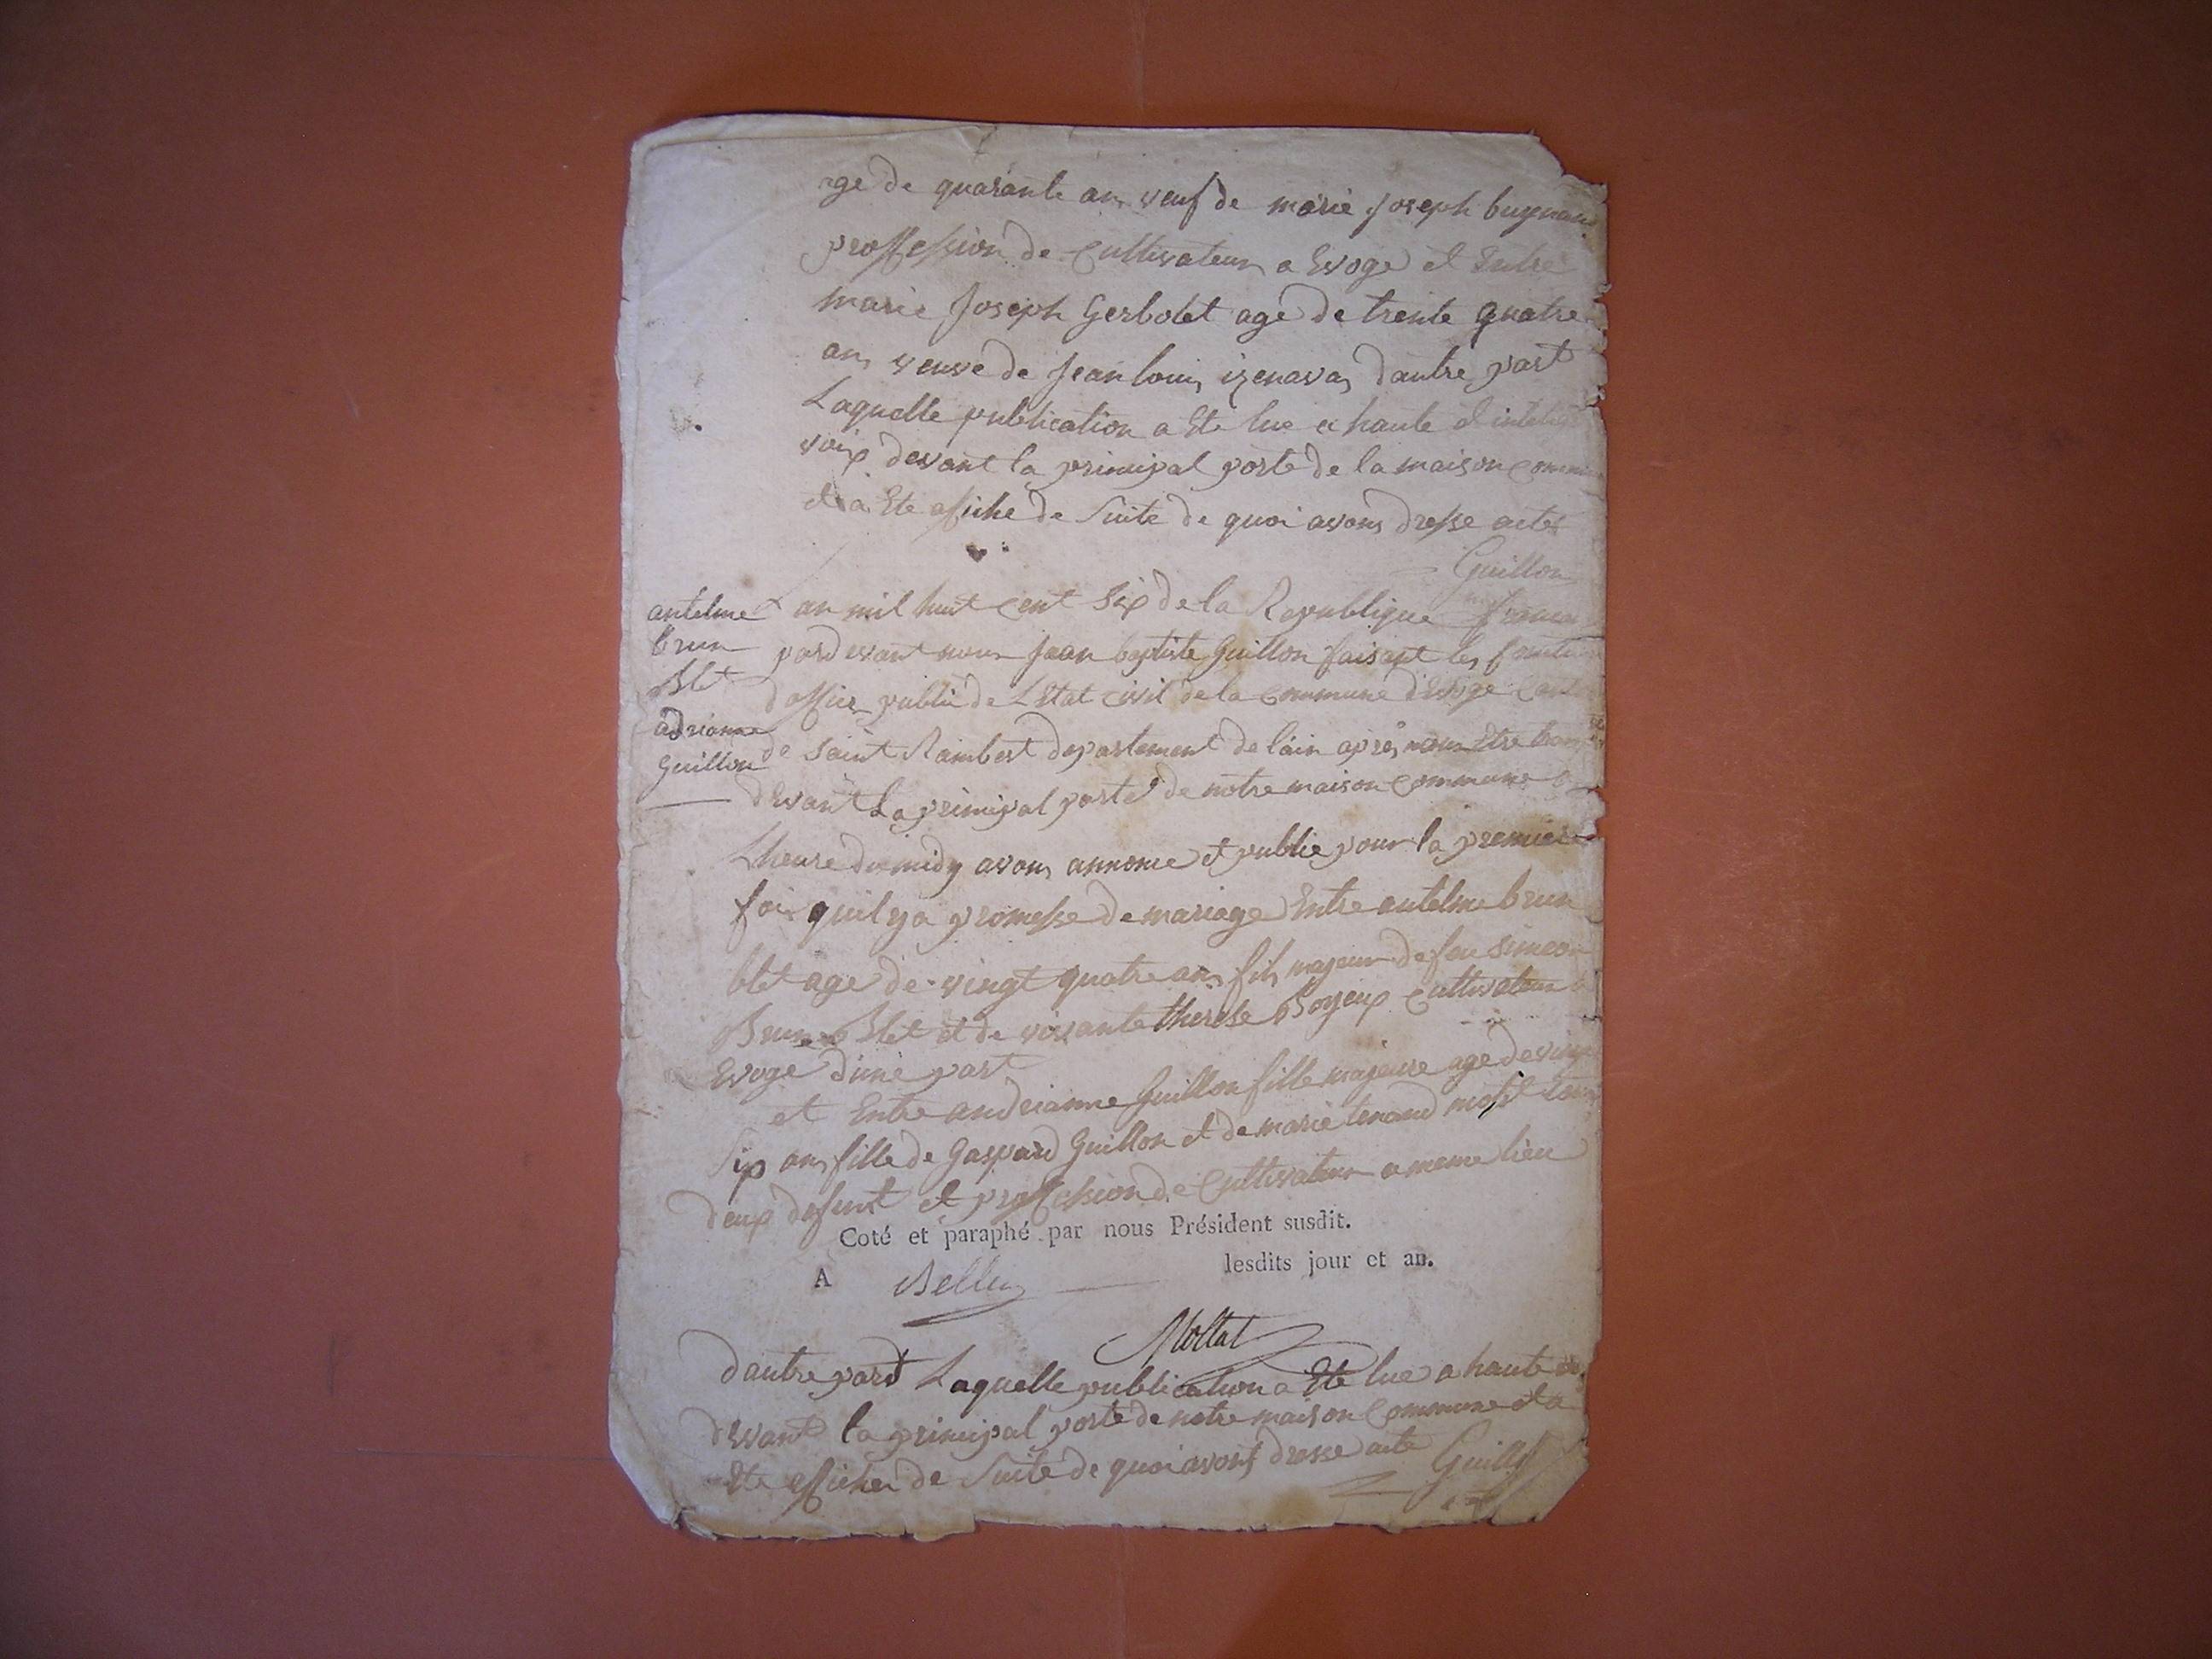 age de quarante ans veuf de marie Joseph bugnand
proffession de Cultivateur a Evoge et Entre
marie Joseph Gerbolet age de trente quatre
ans veuve de Jean louis izenavas dautre part
Laquelle publication a Ete lue a haute et inteli
voix devant la principal porte de la maison commu
et a Ete afiche de Suite de quoi avons dresse actes
Guillon
antelme
brun
Blet
adrianne
Guillon
Lan mil huit Cent Six de la Republique franca
pardevant nous Jean baptiste Guillon faisant les fonction
dofficier public de LEtat civil de la Commune dEvoge Can
de Saint Rambert departement de lain après nous Etre tran
devant La principal porte de notre maison Commune a
Lheure de midy avons annonce et publie pour la premiere
fois quil y a promesse de mariage Entre antelme brun
blet age de vingt quatre ans fils majeur de feu simeon
Brun Blet et de vivante therese Boyeux Cultivateur a
Evoge dune part
et Entre andrianne Guillon fille majeure age de vingt
Six ans fille de Gaspard Guillon et de marie tenand
deux defunt et proffession de Cultivateur a meme lieu
Coté et paraphé par nous Président susdit.
A Belley lesdits jour et an.
Mollat
dautre part Laquelle publication a Ete lue a haute
devant la principal porte de notre maison Commune et a
Ete afficher de Suite de quoi avons dresse acte Guillon